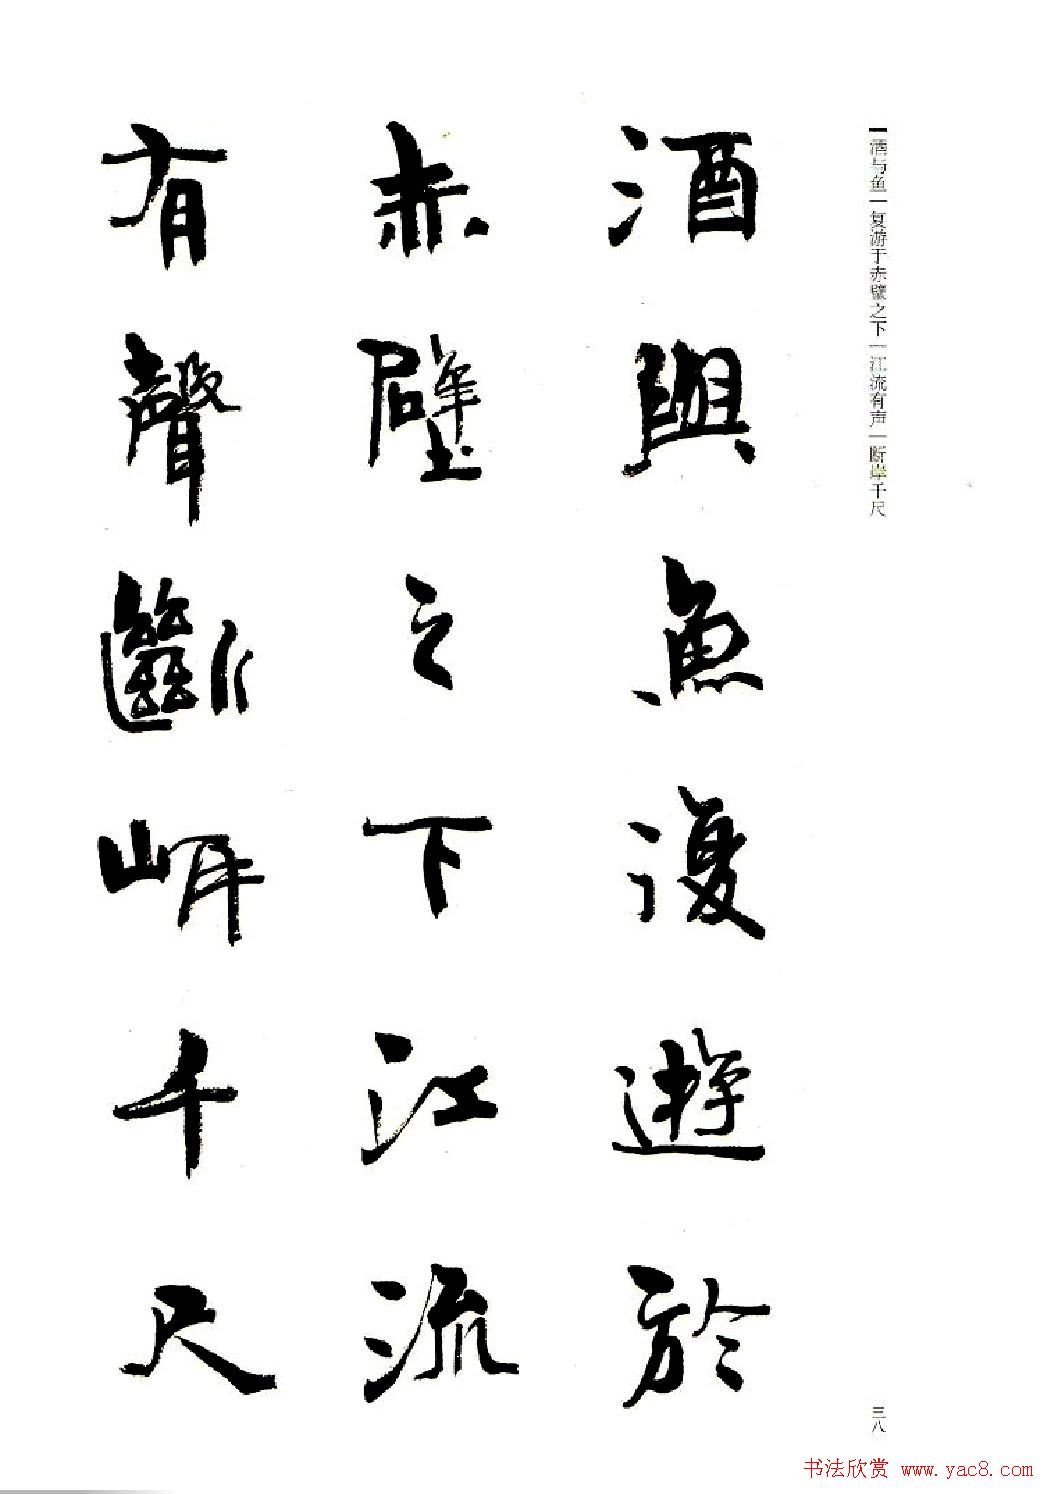 酒与鱼｜复游于赤壁之下｜江流有声｜断岸千尺
酒與魚復遊於
赤壁之下江流
有聲斷岸千尺
三八
书法欣赏 www.yac8.com